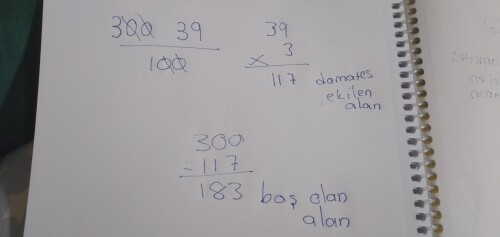 300 39
100
39
× 3
117 domates
ekilen
alan
300
- 117
183 boş olan
alan